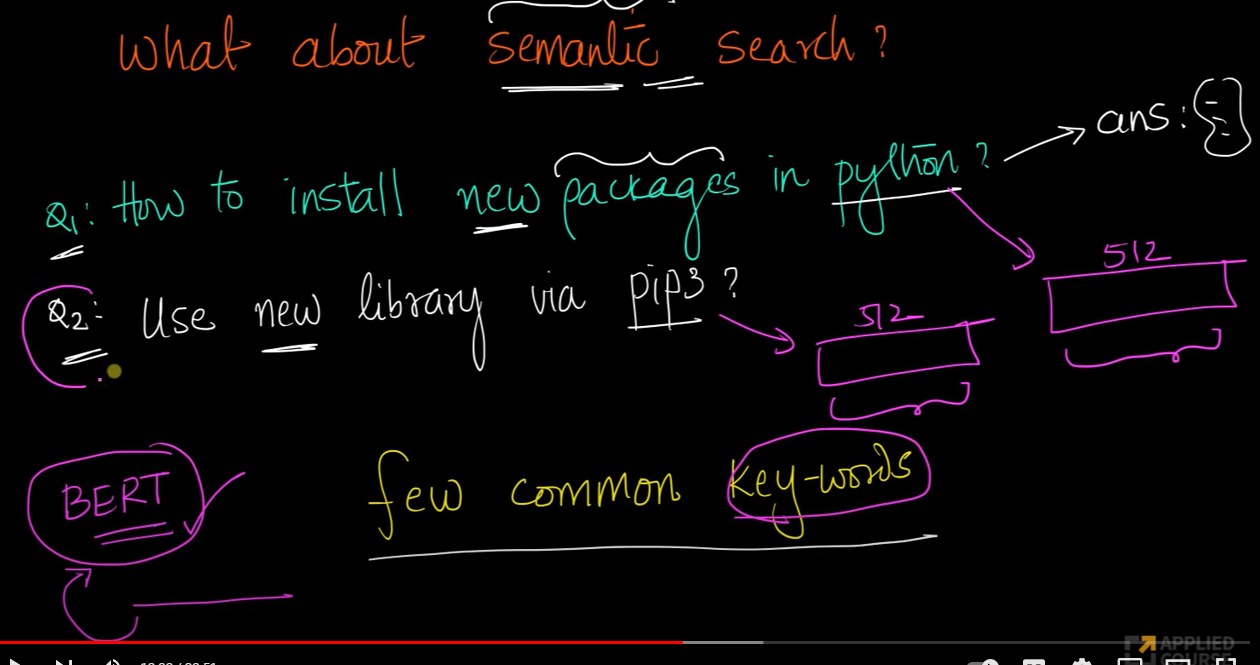 What about semantic search?
ans: {
Q1: How to install new packages in python?
512
Q2: Use new library via pip3?
512
BERT
few common key-words
APPLIED
COURSE